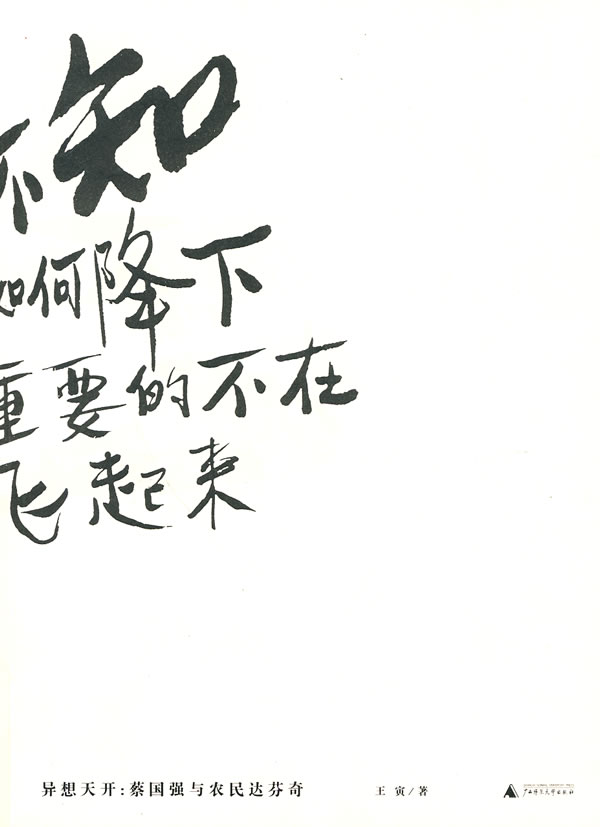 不知
如何降下
重要的不在
飞起来
异想天开:蔡国强与农民达芬奇
王寅/著
广西师范大学出版社